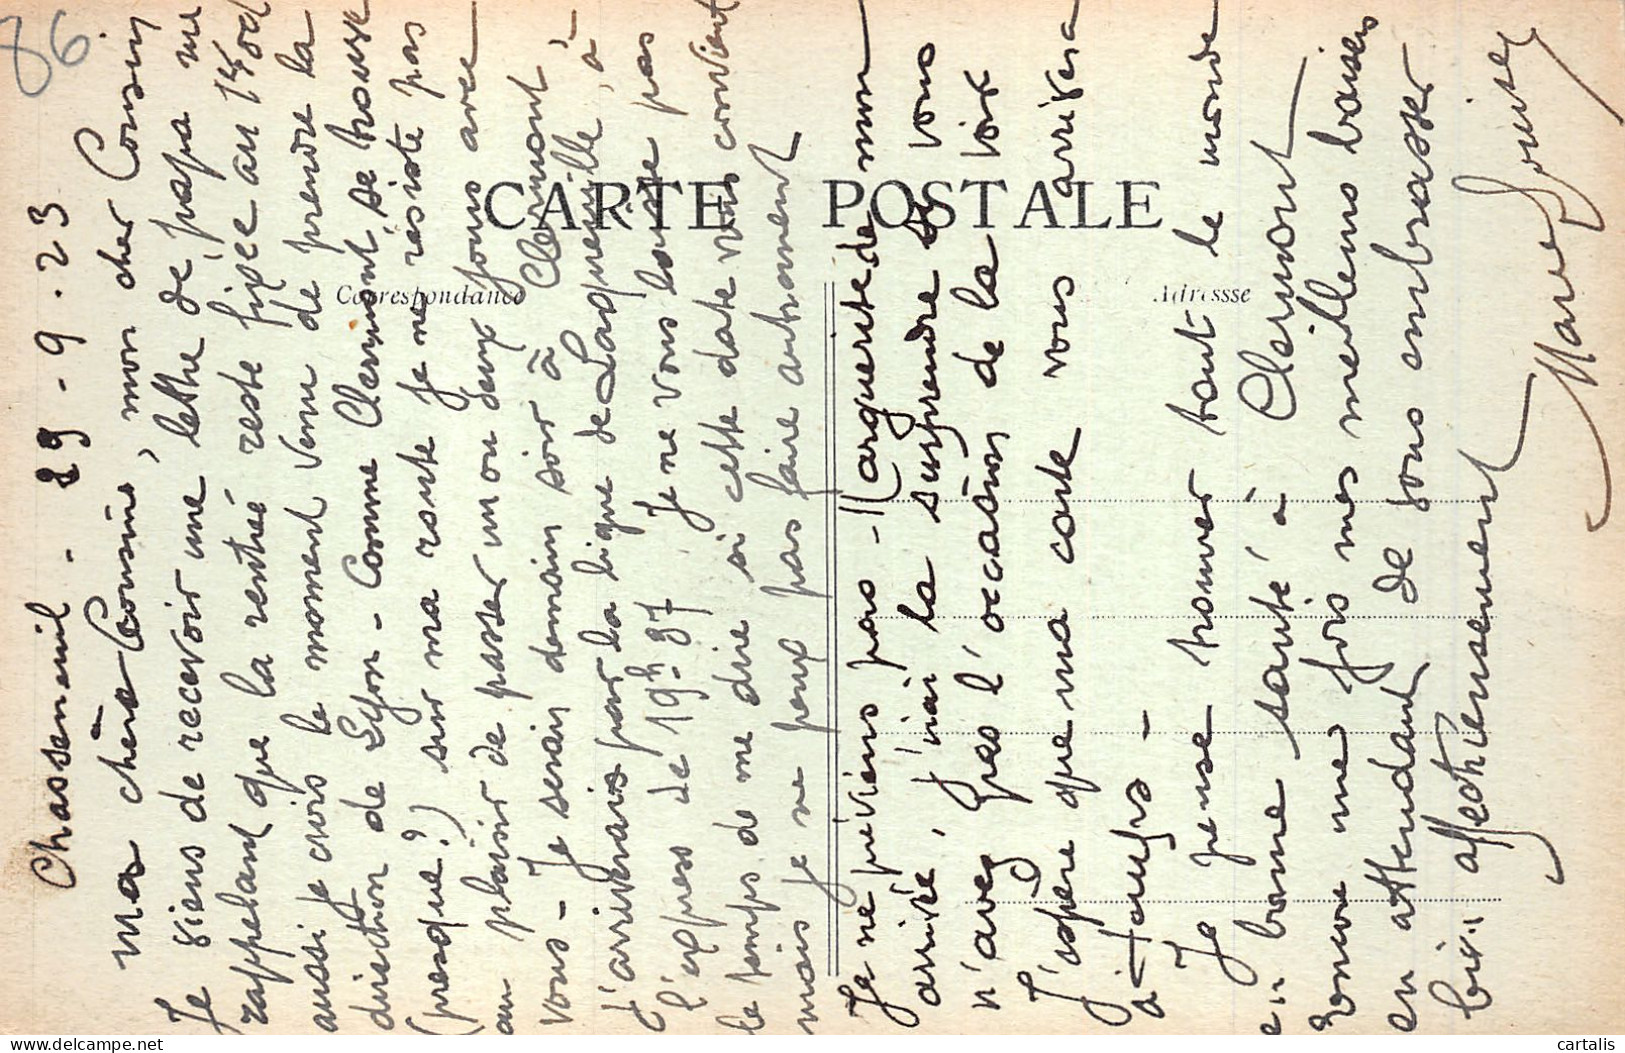 86
CARTE POSTALE
Correspondance
Adresse
Chasseneuil - 29-9-23
Ma chère Cousine, mon cher Cousin
Je viens de recevoir une lettre de papa me
rappelant que la rentrée reste fixée au 1er oct
aussi je crois le moment venu de prendre la
direction de Lyon - Comme Clermont, se trouve
(presque ?) sur ma route je ne résiste pas
au plaisir de passer un ou deux jours avec
vous - Je serai demain soir à Clermont,
j'arriverais par la ligne de Laqueuille, à
l'express de 19h-37 Je ne vous laisse pas
le temps de me dire si cette date vous convient
mais je ne peux pas faire autrement
Je ne préviens pas Marguerite de mon
arrivée, j'irai la surprendre si vous
n'avez pas l'occasion de la voir
J'espère que ma carte vous arrivera
à temps -
Je pense trouver tout le monde
en bonne santé à Clermont
Encore une fois mes meilleurs baisers
en attendant de vous embrasser
bien affectueusement
Marie Louise
cartalis